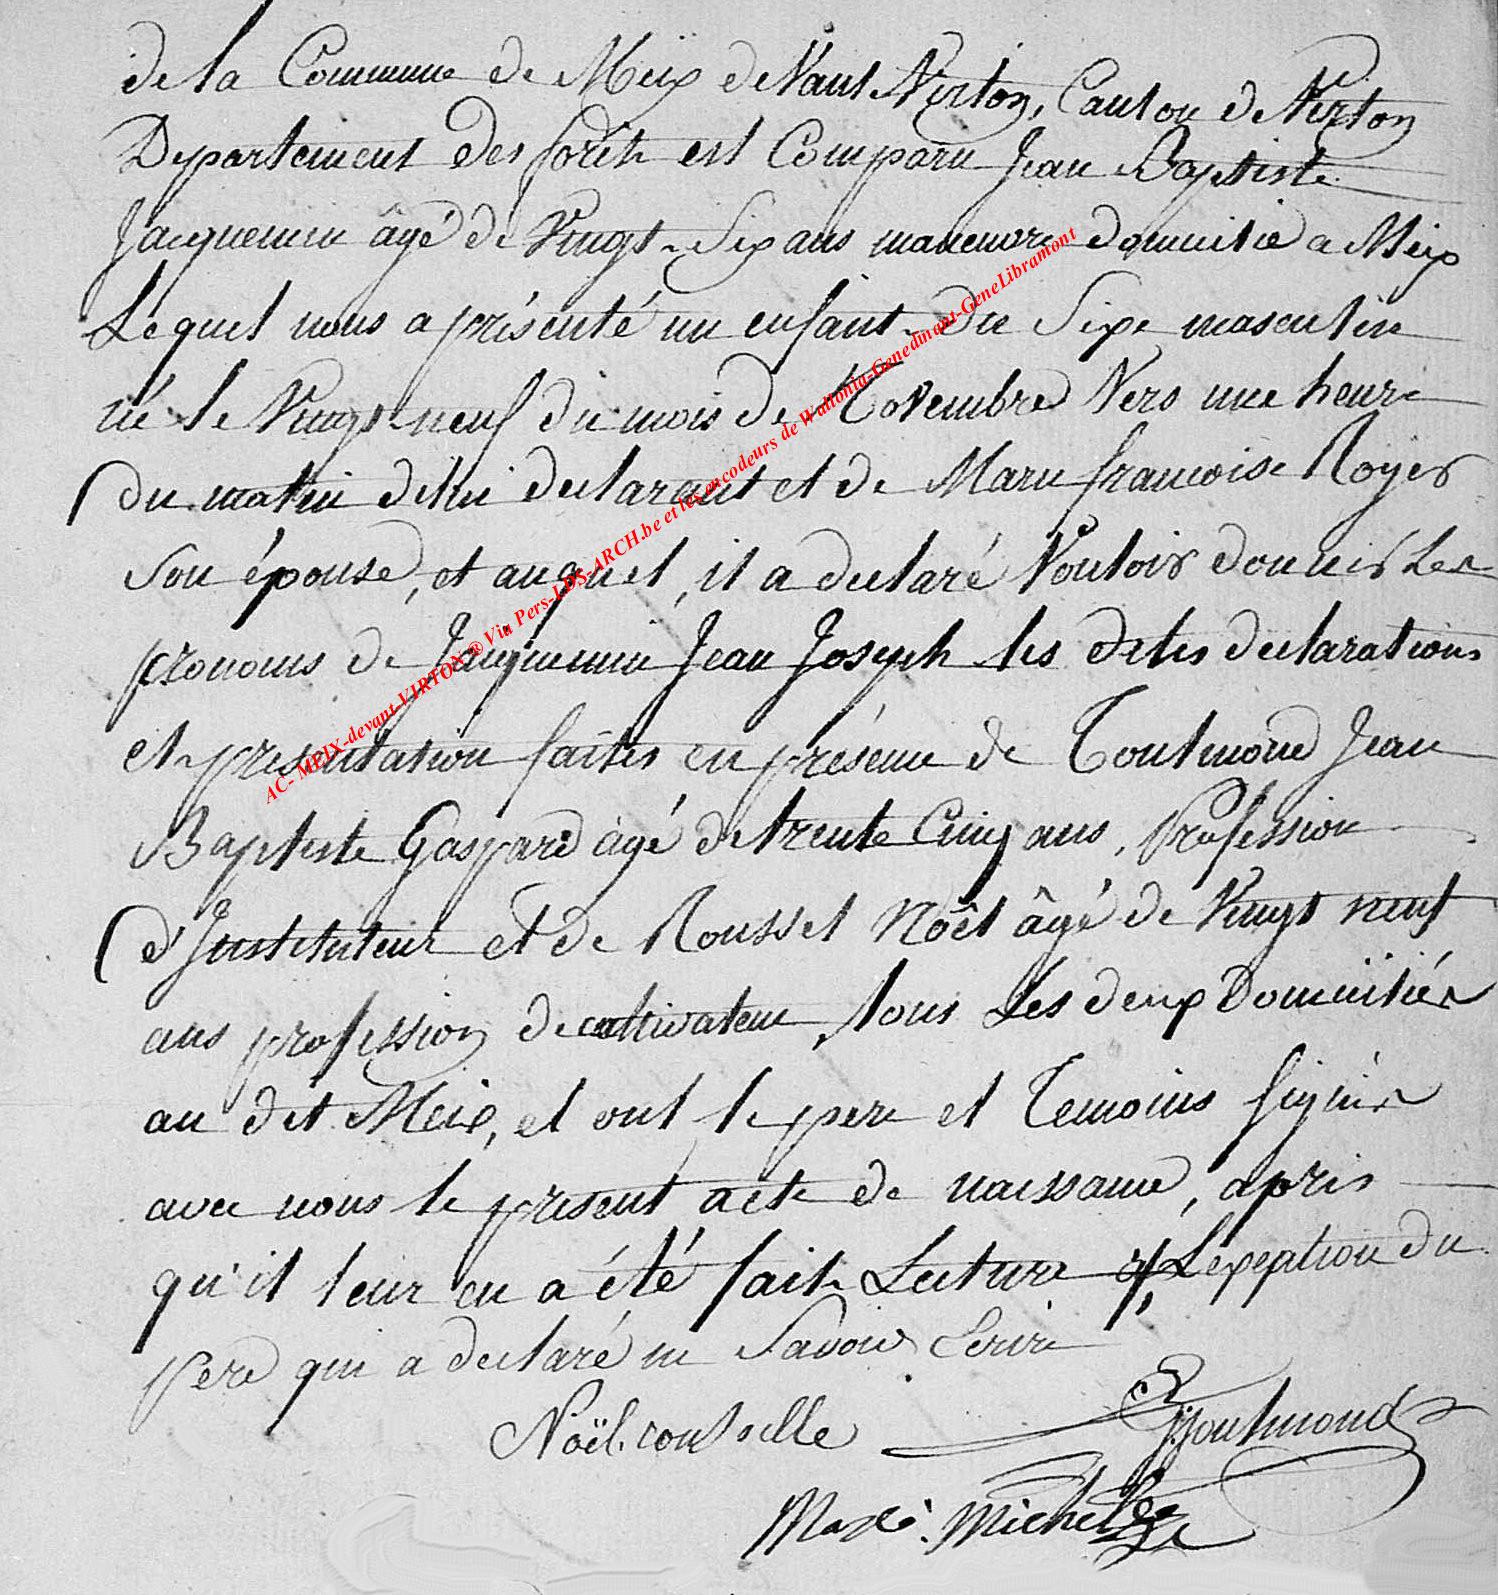 de la Commune de Meix deVant Virton, Canton de Virton
Departement des forêts est Comparu Jean Baptiste
Jacquemin âgé de Vingt-Six ans maneuvre domicilié a Meix
Lequel nous a présenté un enfant du Sexe masculin
né le Vingt neuf du mois de Novembre Vers une heure
du matin de lui declarant et de Marie francoise Royer
Son épouse, et auquel, il a declaré Vouloir donner Les
pronoms de Jacquemin Jean Joseph les dites declarations
et presentation faites en présence de Toutmond Jean
Baptiste Gaspard agé de trente Cinq ans, Profession
d'Instituteur et de Roussel Noël âgé de Vingt neuf
ans profession de cultivateur, tous Les deux Domiciliés
au dit Meix, et ont le pere et Temoins signés
avec nous le present acte de naissance, apris
qu'il leur en a été fait Lecture a L'exeption du
pere qui a declaré ne Savoir Ecrire
Noël rousselle Toutmond
Michel
AC- MEIX-devant-VIRTON ® Via Pers-LDS-ARCH.be et les encodeurs de Wallonia-Genedinant-GeneLibramont